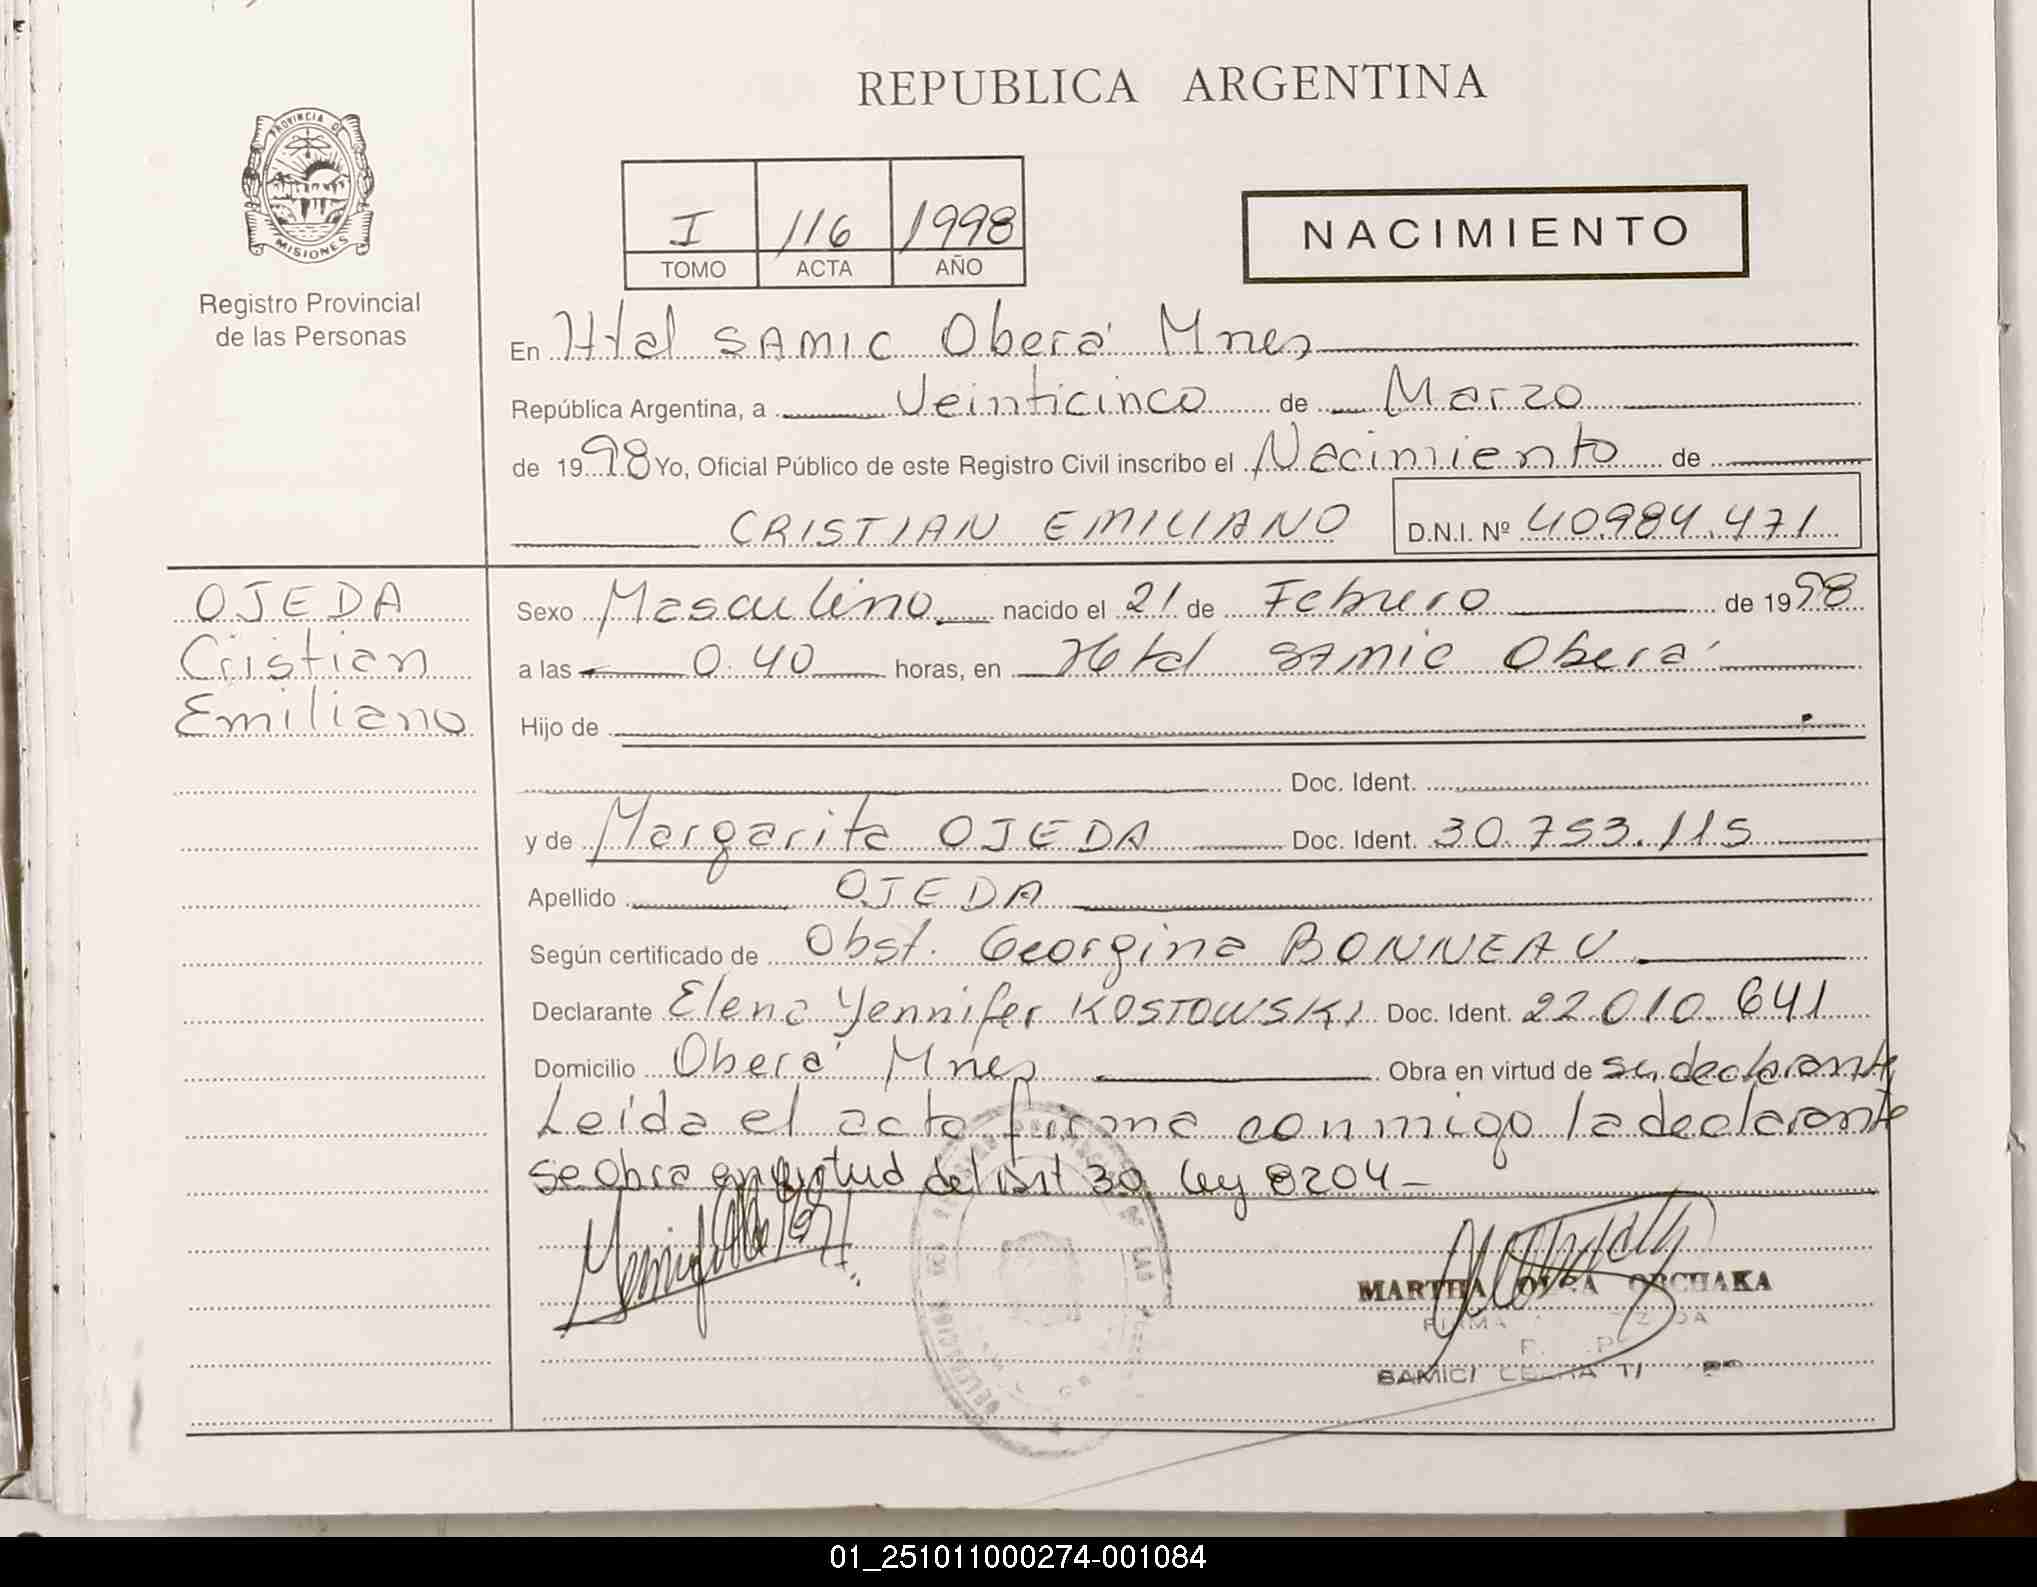 REPUBLICA ARGENTINA
PROVINCIA DE
MISIONES
Registro Provincial
de las Personas
I 116 1998
TOMO ACTA AÑO
NACIMIENTO
En Htal SAMIC Oberá Mnes
República Argentina, a Veinticinco de Marzo
de 1998 Yo, Oficial Público de este Registro Civil inscribo el Nacimiento de
CRISTIAN EMILIANO D.N.I. Nº 40.984.471
OJEDA
Cristian
Emiliano
Sexo Masculino nacido el 21 de Febrero de 1998
a las 0.40 horas, en Htal SAMIC Oberá
Hijo de
Doc. Ident.
y de Margarita OJEDA Doc. Ident. 30.753.115
Apellido OJEDA
Según certificado de Obst. Georgina BONNEAU
Declarante Elena Yennifer KOSTOWSKI Doc. Ident. 22.010.641
Domicilio Oberá Mnes Obra en virtud de su declarante
Leída el acta firma conmigo la declarante
se obra en virtud del Art 30 ley 8204 -
MARTHA OLGA ORCHAKA
SAMIC
01_251011000274-001084